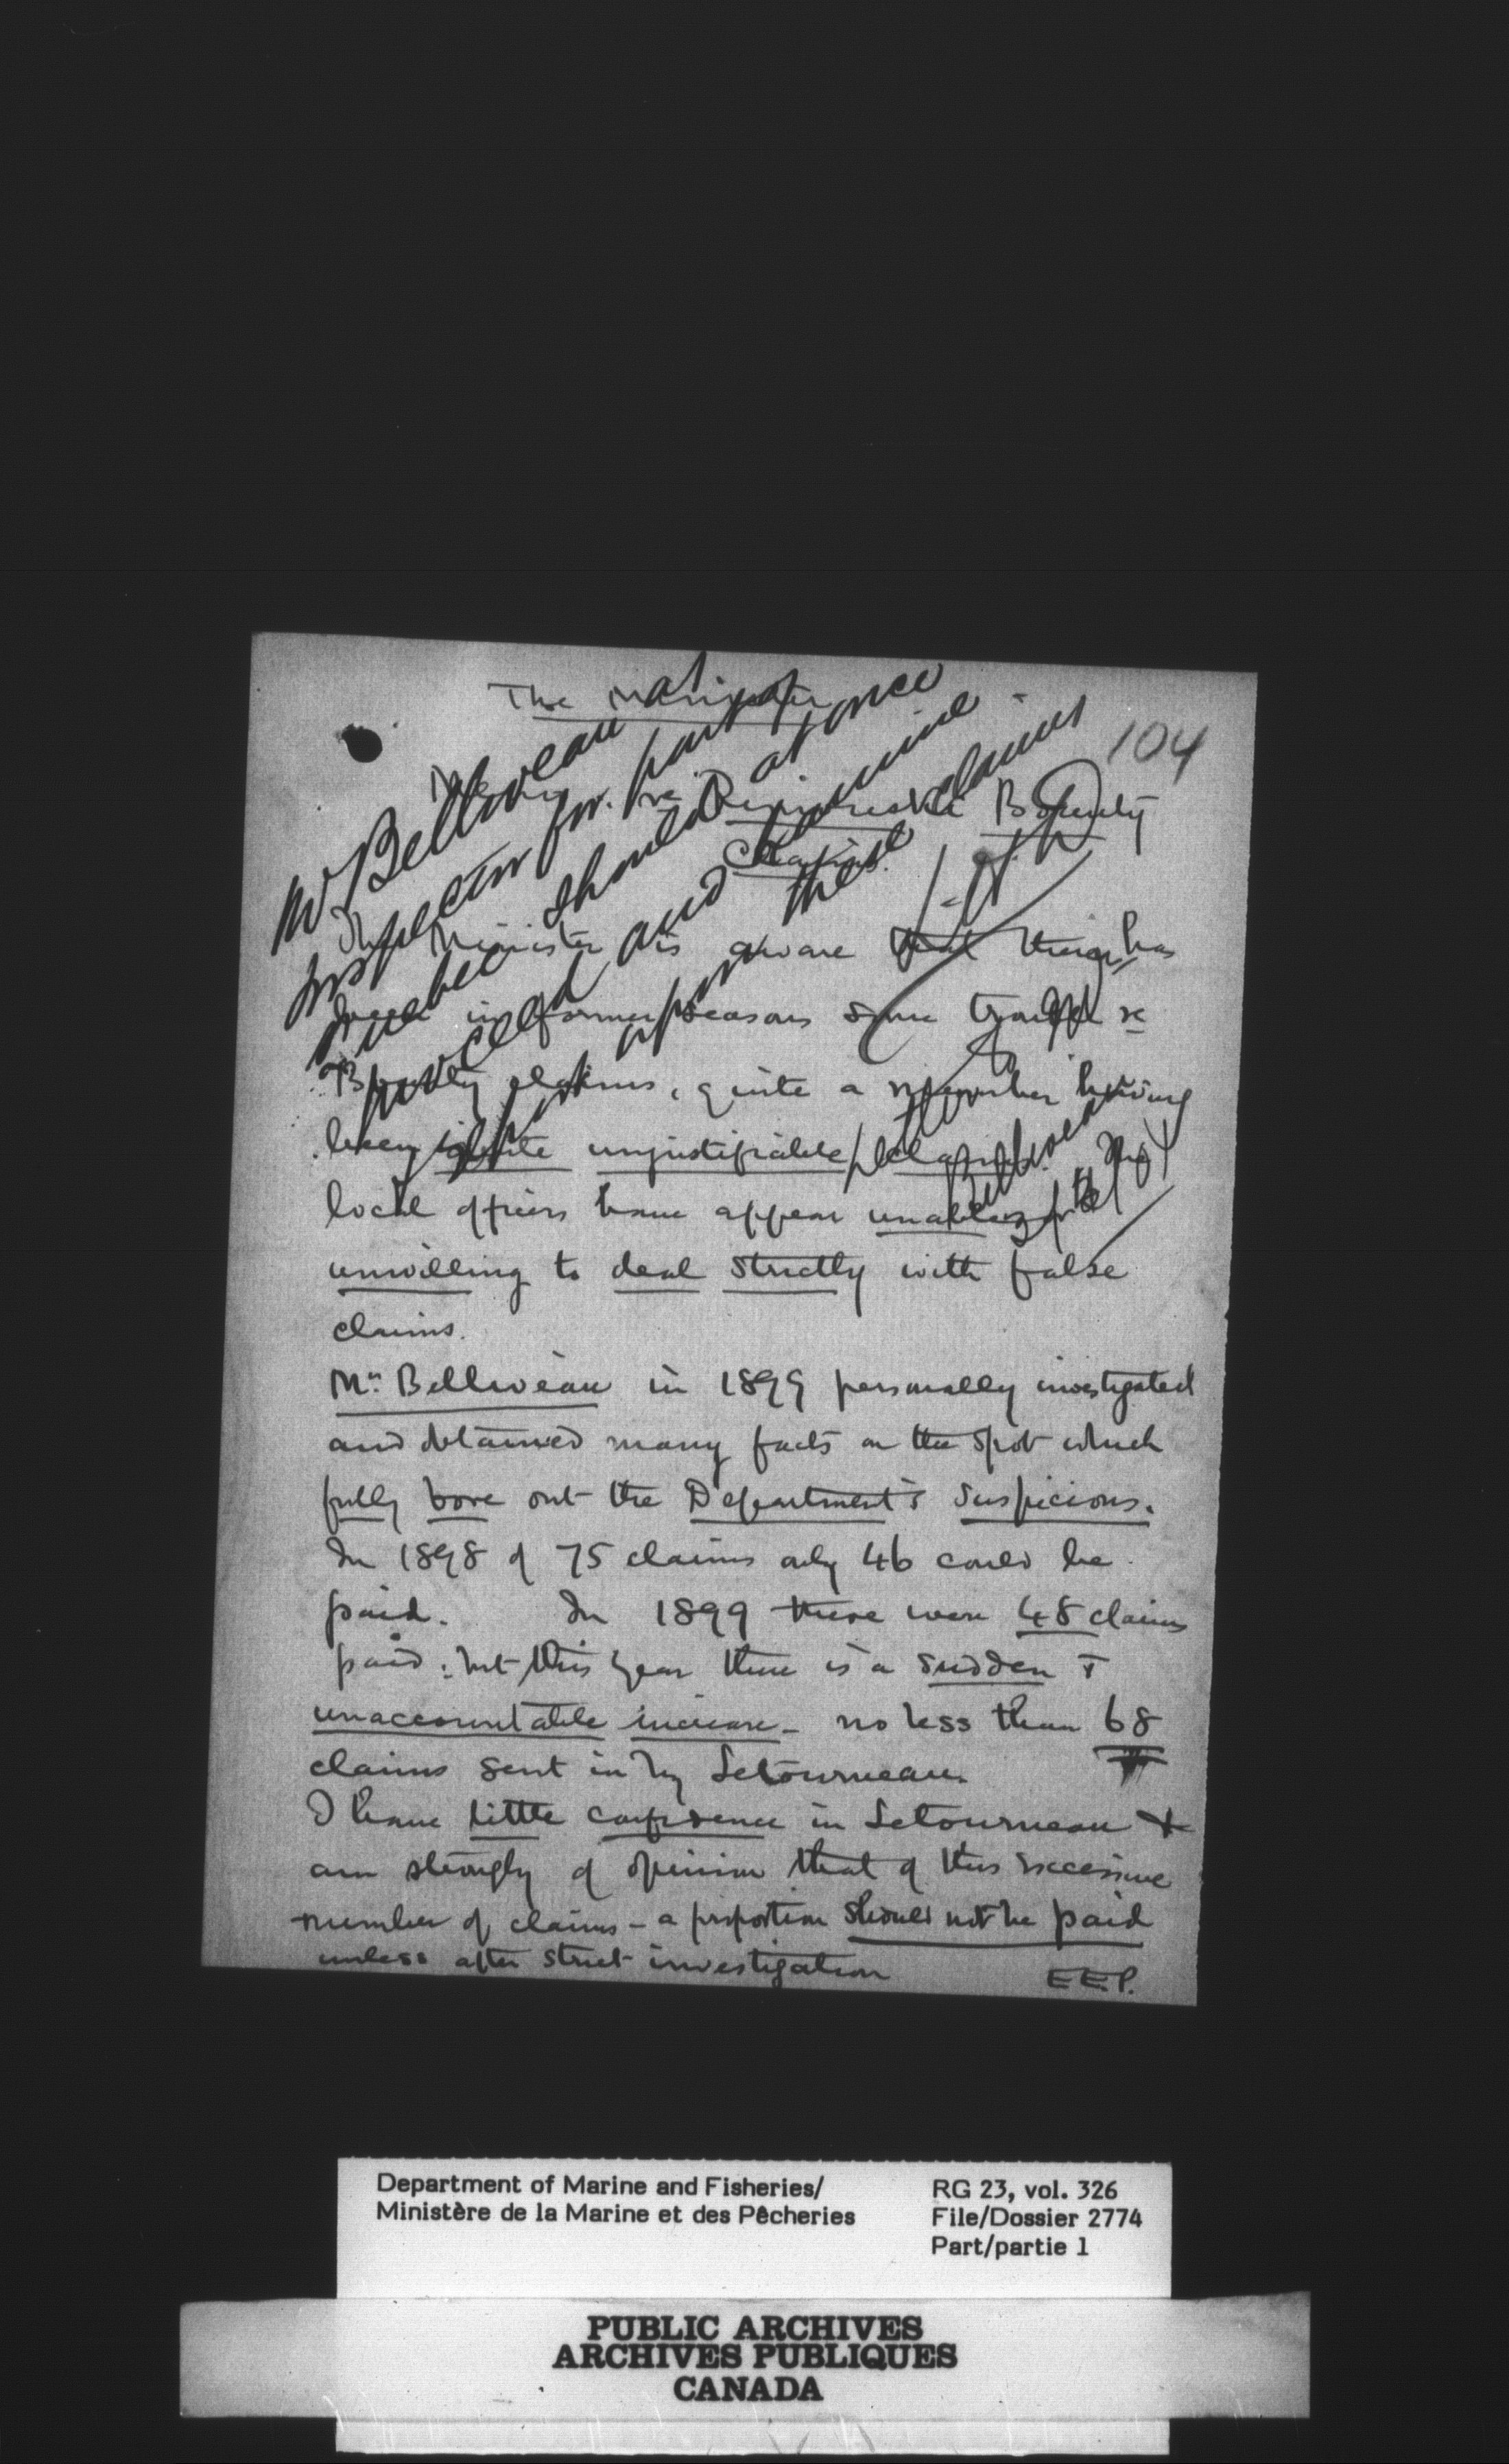 The Minister
104
re Bounty
Claims.
The Minister is aware that there has
been in former seasons some trouble re
Bounty claims, quite a number having
been quite unjustifiable claims. The
local officers have appear unable or
unwilling to deal strictly with false
claims.
Mr. Belliveau in 1899 personally investigated
and obtained many facts on the spot which
fully bore out the Department's suspicions.
In 1898 of 75 claims only 46 could be
paid. In 1899 there were 48 claims
paid: but this year there is a sudden &
unaccountable increase - no less than 68
claims sent in by Letourneau.
I have little confidence in Letourneau &
am strongly of opinion that of this excessive
number of claims - a proportion should not be paid
unless after strict investigation
E.E.P.
Mr Belliveau
Inspector for part of
Quebec should at once
proceed and examine
upon these claims
Department of Marine and Fisheries/
Ministère de la Marine et des Pêcheries
RG 23, vol. 326
File/Dossier 2774
Part/partie 1
PUBLIC ARCHIVES
ARCHIVES PUBLIQUES
CANADA